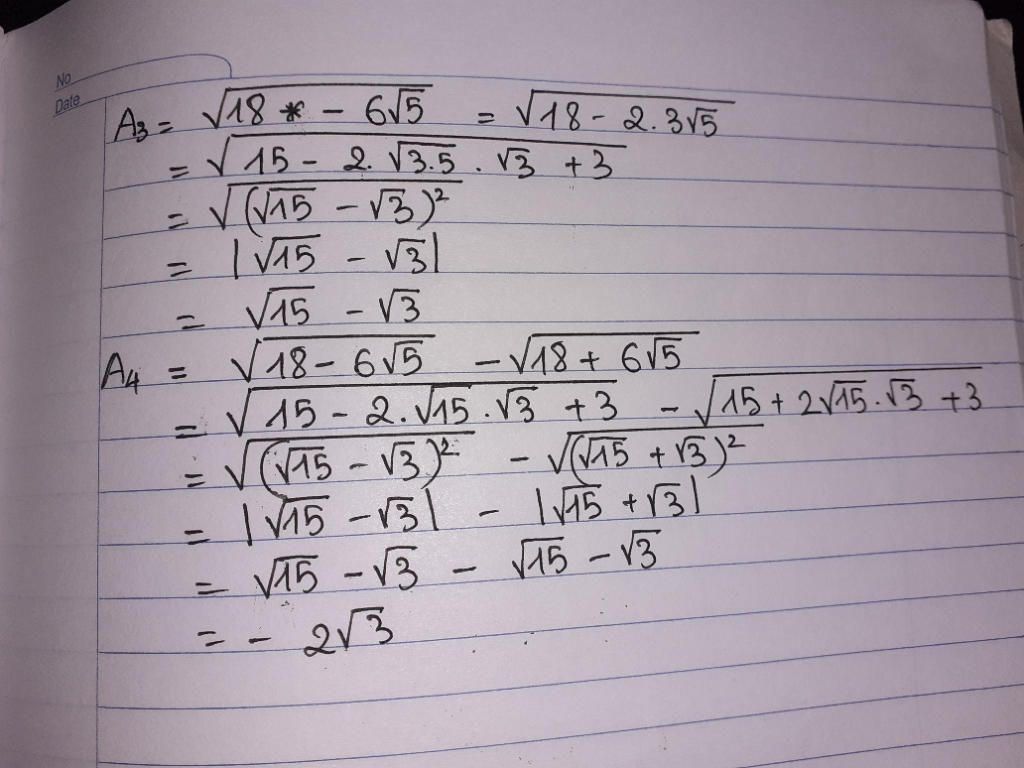 No
Date
A₃ = √(18 - 6√5) = √(18 - 2.3√5)
= √(15 - 2.√(3.5).√3 + 3)
= √((√15 - √3)²)
= |√15 - √3|
= √15 - √3
A₄ = √(18 - 6√5) - √(18 + 6√5)
= √(15 - 2.√15.√3 + 3) - √(15 + 2√15.√3 + 3)
= √((√15 - √3)²) - √((√15 + √3)²)
= |√15 - √3| - |√15 + √3|
= √15 - √3 - √15 - √3
= - 2√3